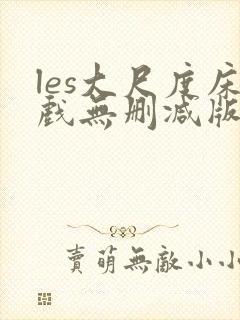 les大尺度床
戲無刪減版
賣萌無敵小小